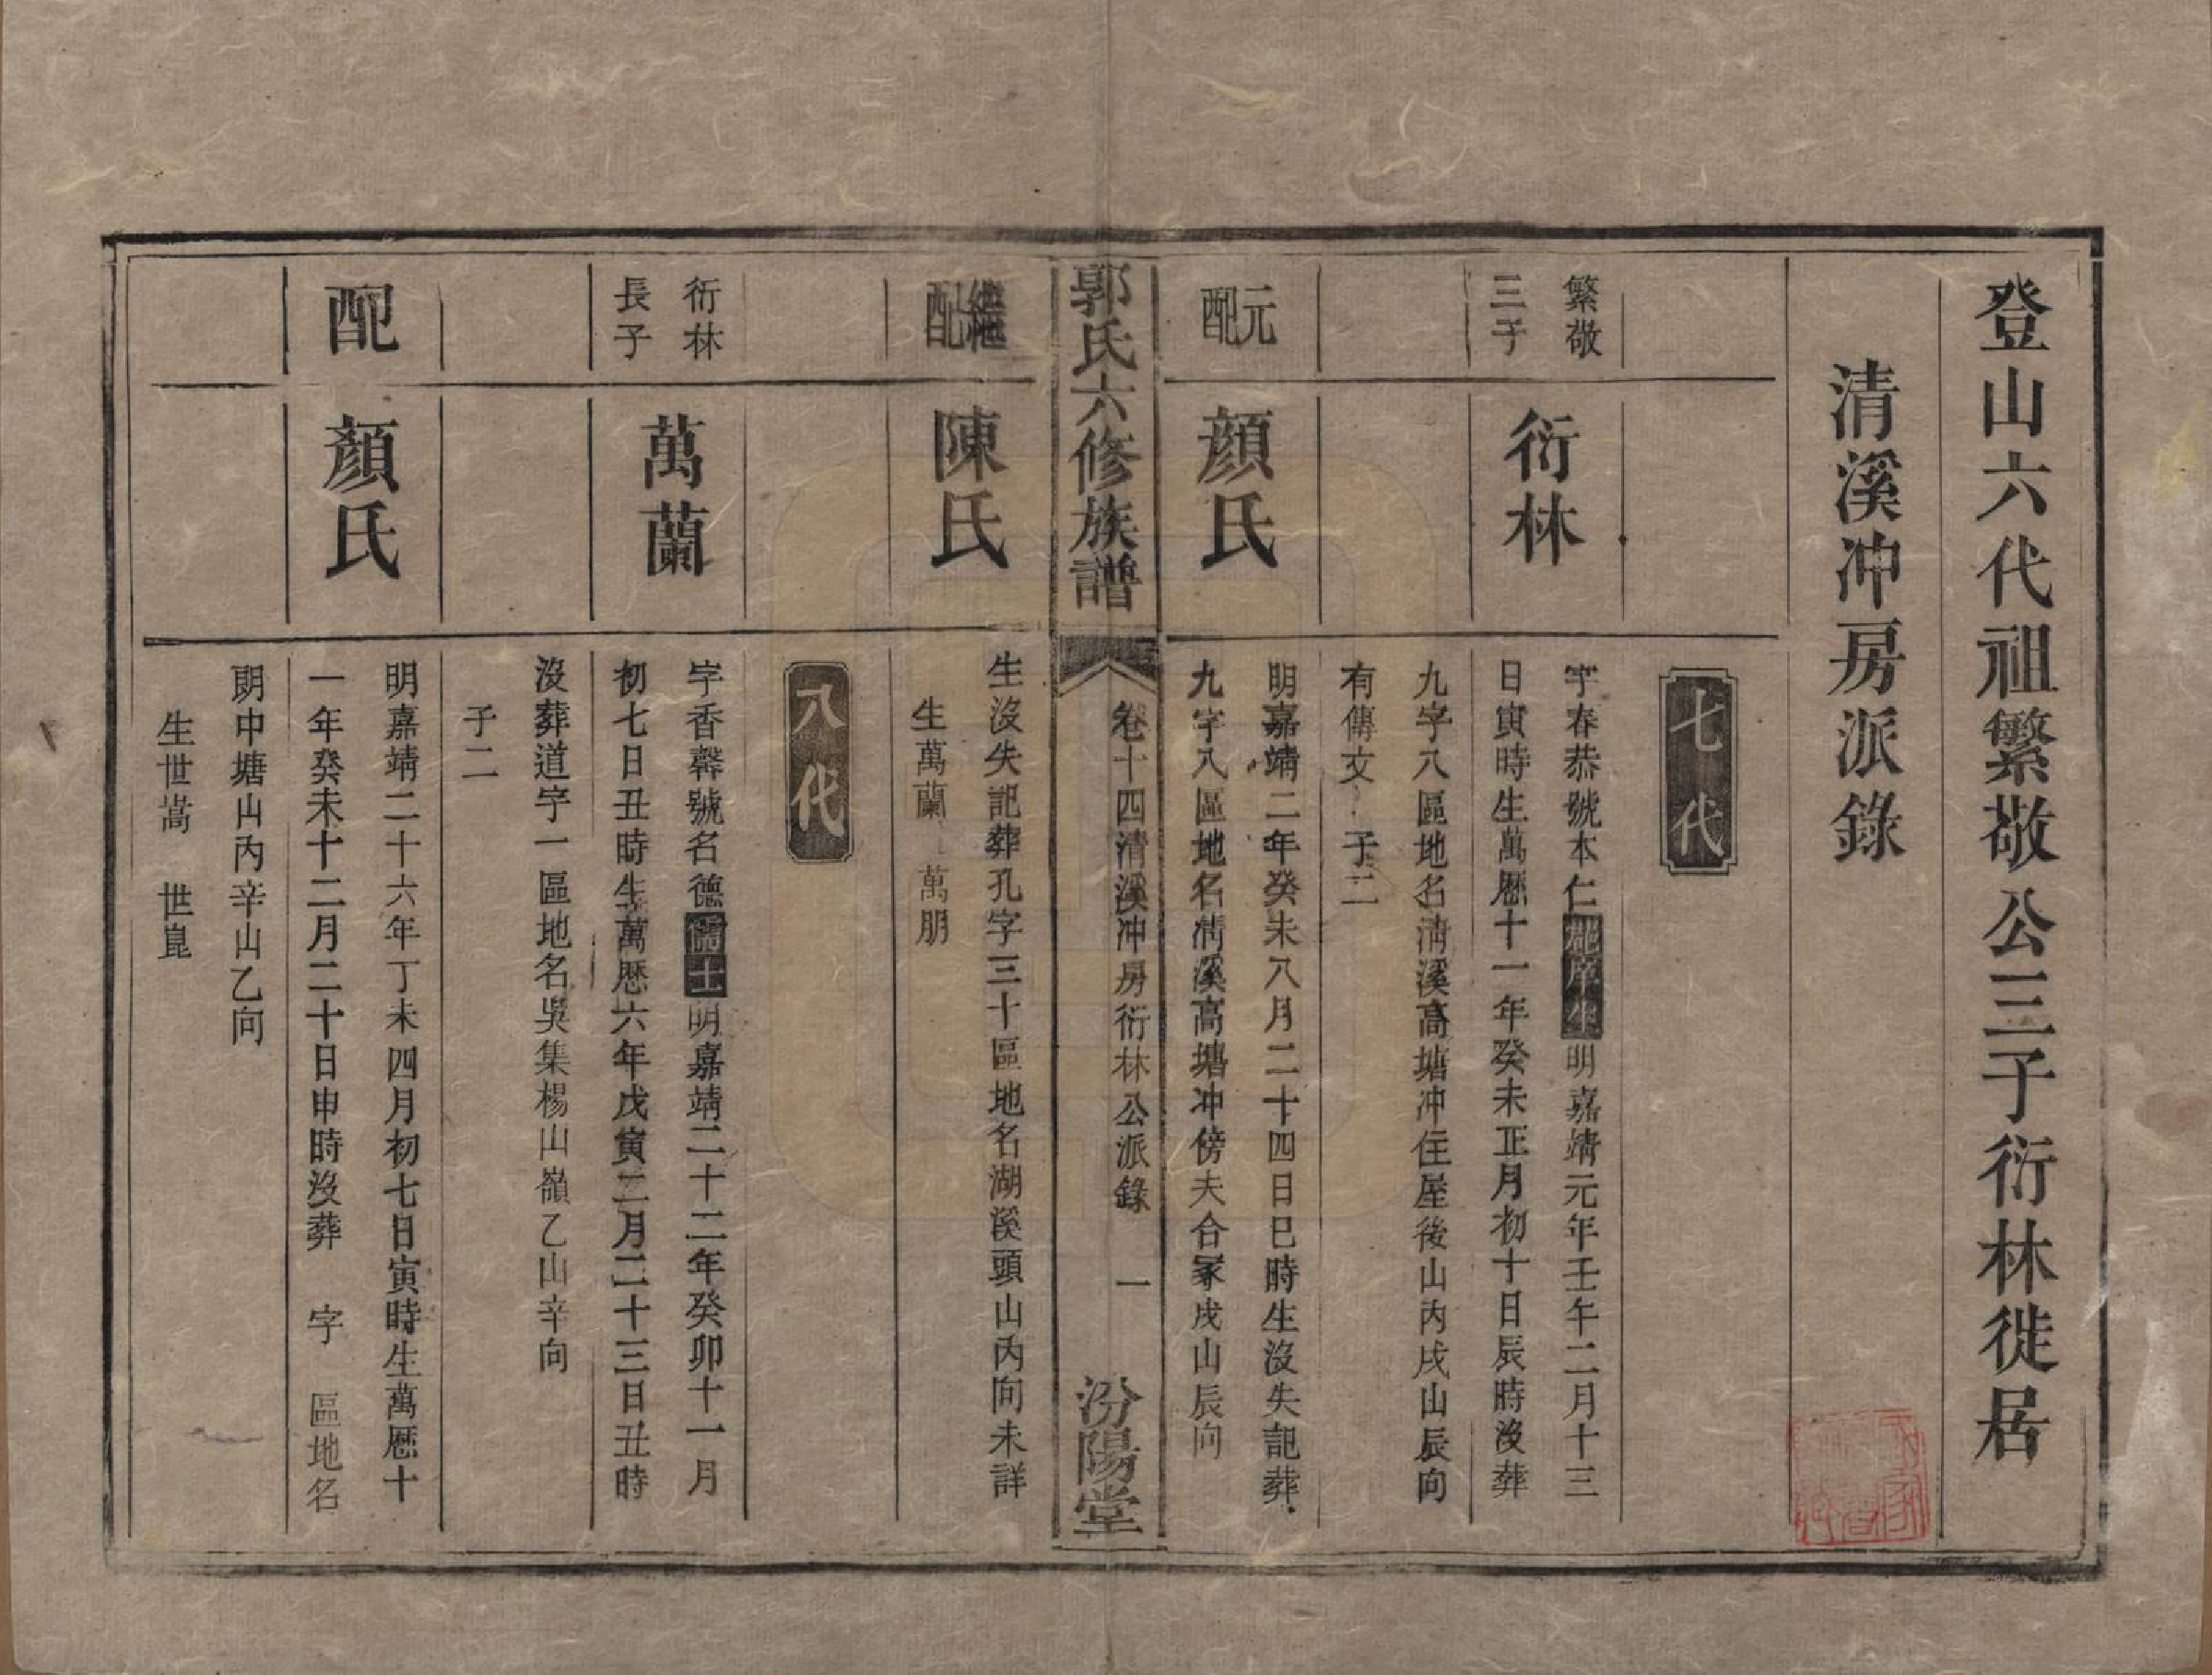 登山六代祖繁敬公三子衍林徙居
清溪冲房派錄
七代
繁敬
三子
衍林
字春恭號本仁郡庠生明嘉靖元年壬午二月十三
日寅時生萬歷十一年癸未正月初十日辰時沒葬
九字八區地名清溪高塘冲住屋後山內戌山辰向
有傳文 子二
元配
顏氏
明嘉靖二年癸未八月二十四日巳時生沒失記葬
九字八區地名清溪高塘冲傍夫合冢戌山辰向
郭氏六修族譜
卷十四清溪冲房衍林公派錄 一
汾陽堂
繼配
陳氏
生沒失記葬孔字三十區地名湖溪頭山內向未詳
生萬蘭 萬朋
八代
衍林
長子
萬蘭
字香馨號名德儒士明嘉靖二十二年癸卯十一月
初七日丑時生萬歷六年戊寅二月二十三日丑時
沒葬道字一區地名吳集楊山嶺乙山辛向
子二
配
顏氏
明嘉靖二十六年丁未四月初七日寅時生萬歷十
一年癸未十二月二十日申時沒葬 字 區地名
朗中塘山內辛山乙向
生世嵩 世崑